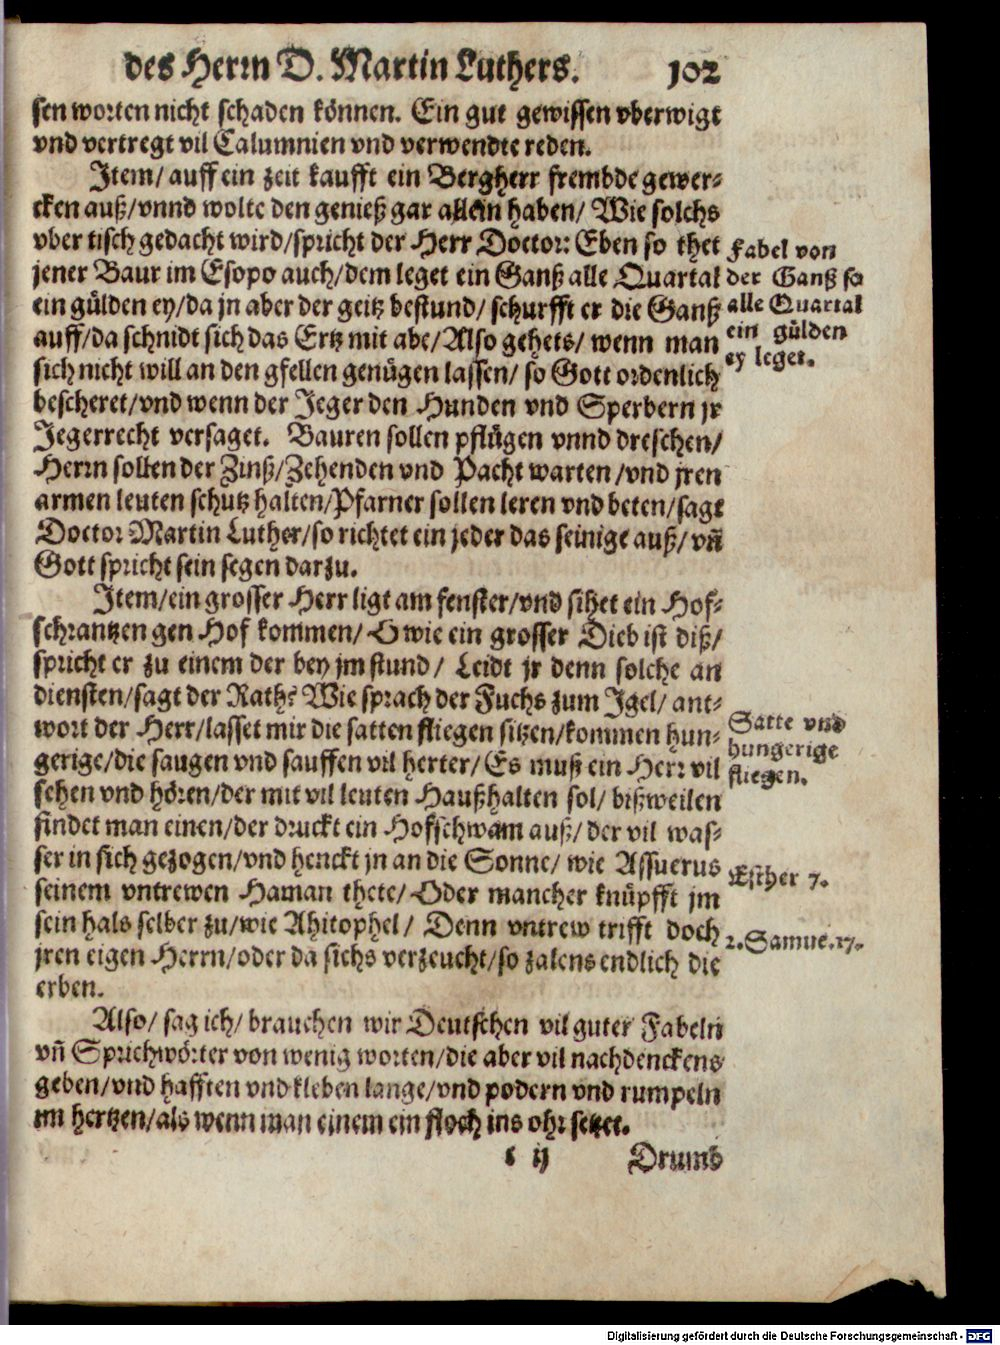 des Herrn D. Martin Luthers. 102
sen worten nicht schaden können. Ein gut gewissen vberwigt
vnd vertregt vil Calumnien vnd verwendte reden.
Item/ auff ein zeit kaufft ein Bergherr frembde gewer-
cken auß/vnnd wolte den genieß gar allein haben/ Wie solchs
vber tisch gedacht wird/spricht der Herr Doctor: Eben so thet
jener Baur im Esopo auch/dem leget ein Ganß alle Quartal
ein gülden ey/da jn aber der geitz bestund/ schurfft er die Ganß
auff/da schnidt sich das Ertz mit abe/Also gehets/ wenn man
Fabel von
der Ganß so
alle Quartal
ein gülden
ey leget.
sich nicht will an den gfellen genügen lassen/ so Gott ordenlich
bescheret/vnd wenn der Jeger den Hunden vnd Sperbern jr
Jegerrecht versaget. Bauren sollen pflügen vnnd dreschen/
Herrn sollen der Zinß/Zehenden vnd Pacht warten/vnd jren
armen leuten schutz halten/Pfarner sollen leren vnd beten/sagt
Doctor Martin Luther/so richtet ein jeder das seinige auß/vñ
Gott spricht sein segen darzu.
Item/ein grosser Herr ligt am fenster/vnd sihet ein Hof-
schrantzen gen Hof kommen/ O wie ein grosser Dieb ist diß/
spricht er zu einem der bey jm stund/ Leidt jr denn solche an
diensten/sagt der Rath? Wie sprach der Fuchs zum Igel/ ant-
wort der Herr/lasset mir die satten fliegen sitzen/kommen hun-
gerige/die saugen vnd sauffen vil herter/ Es muß ein Herr vil
Satte vnd
hungerige
fliegen.
sehen vnd hören/der mit vil leuten Haußhalten sol/ bißweilen
findet man einen/der druckt ein Hofschwam auß/ der vil was-
ser in sich gezogen/vnd henckt jn an die Sonne/ wie Assuerus
seinem vntrewen Haman thete/ Oder mancher knüpfft jm
Esther 7.
sein hals selber zu/wie Ahitophel/ Denn vntrew trifft doch
2.Samue.17.
jren eigen Herrn/oder da sichs verzeucht/so zalens endlich die
erben.
Also/ sag ich/ brauchen wir Deutschen vil guter Fabeln
vñ Sprichwörter von wenig worten/die aber vil nachdenckens
geben/vnd hafften vnd kleben lange/vnd podern vnd rumpeln
im hertzen/als wenn man einem ein floch ins ohr setzet.
c ij Drumb
Digitalisierung gefördert durch die Deutsche Forschungsgemeinschaft - DFG